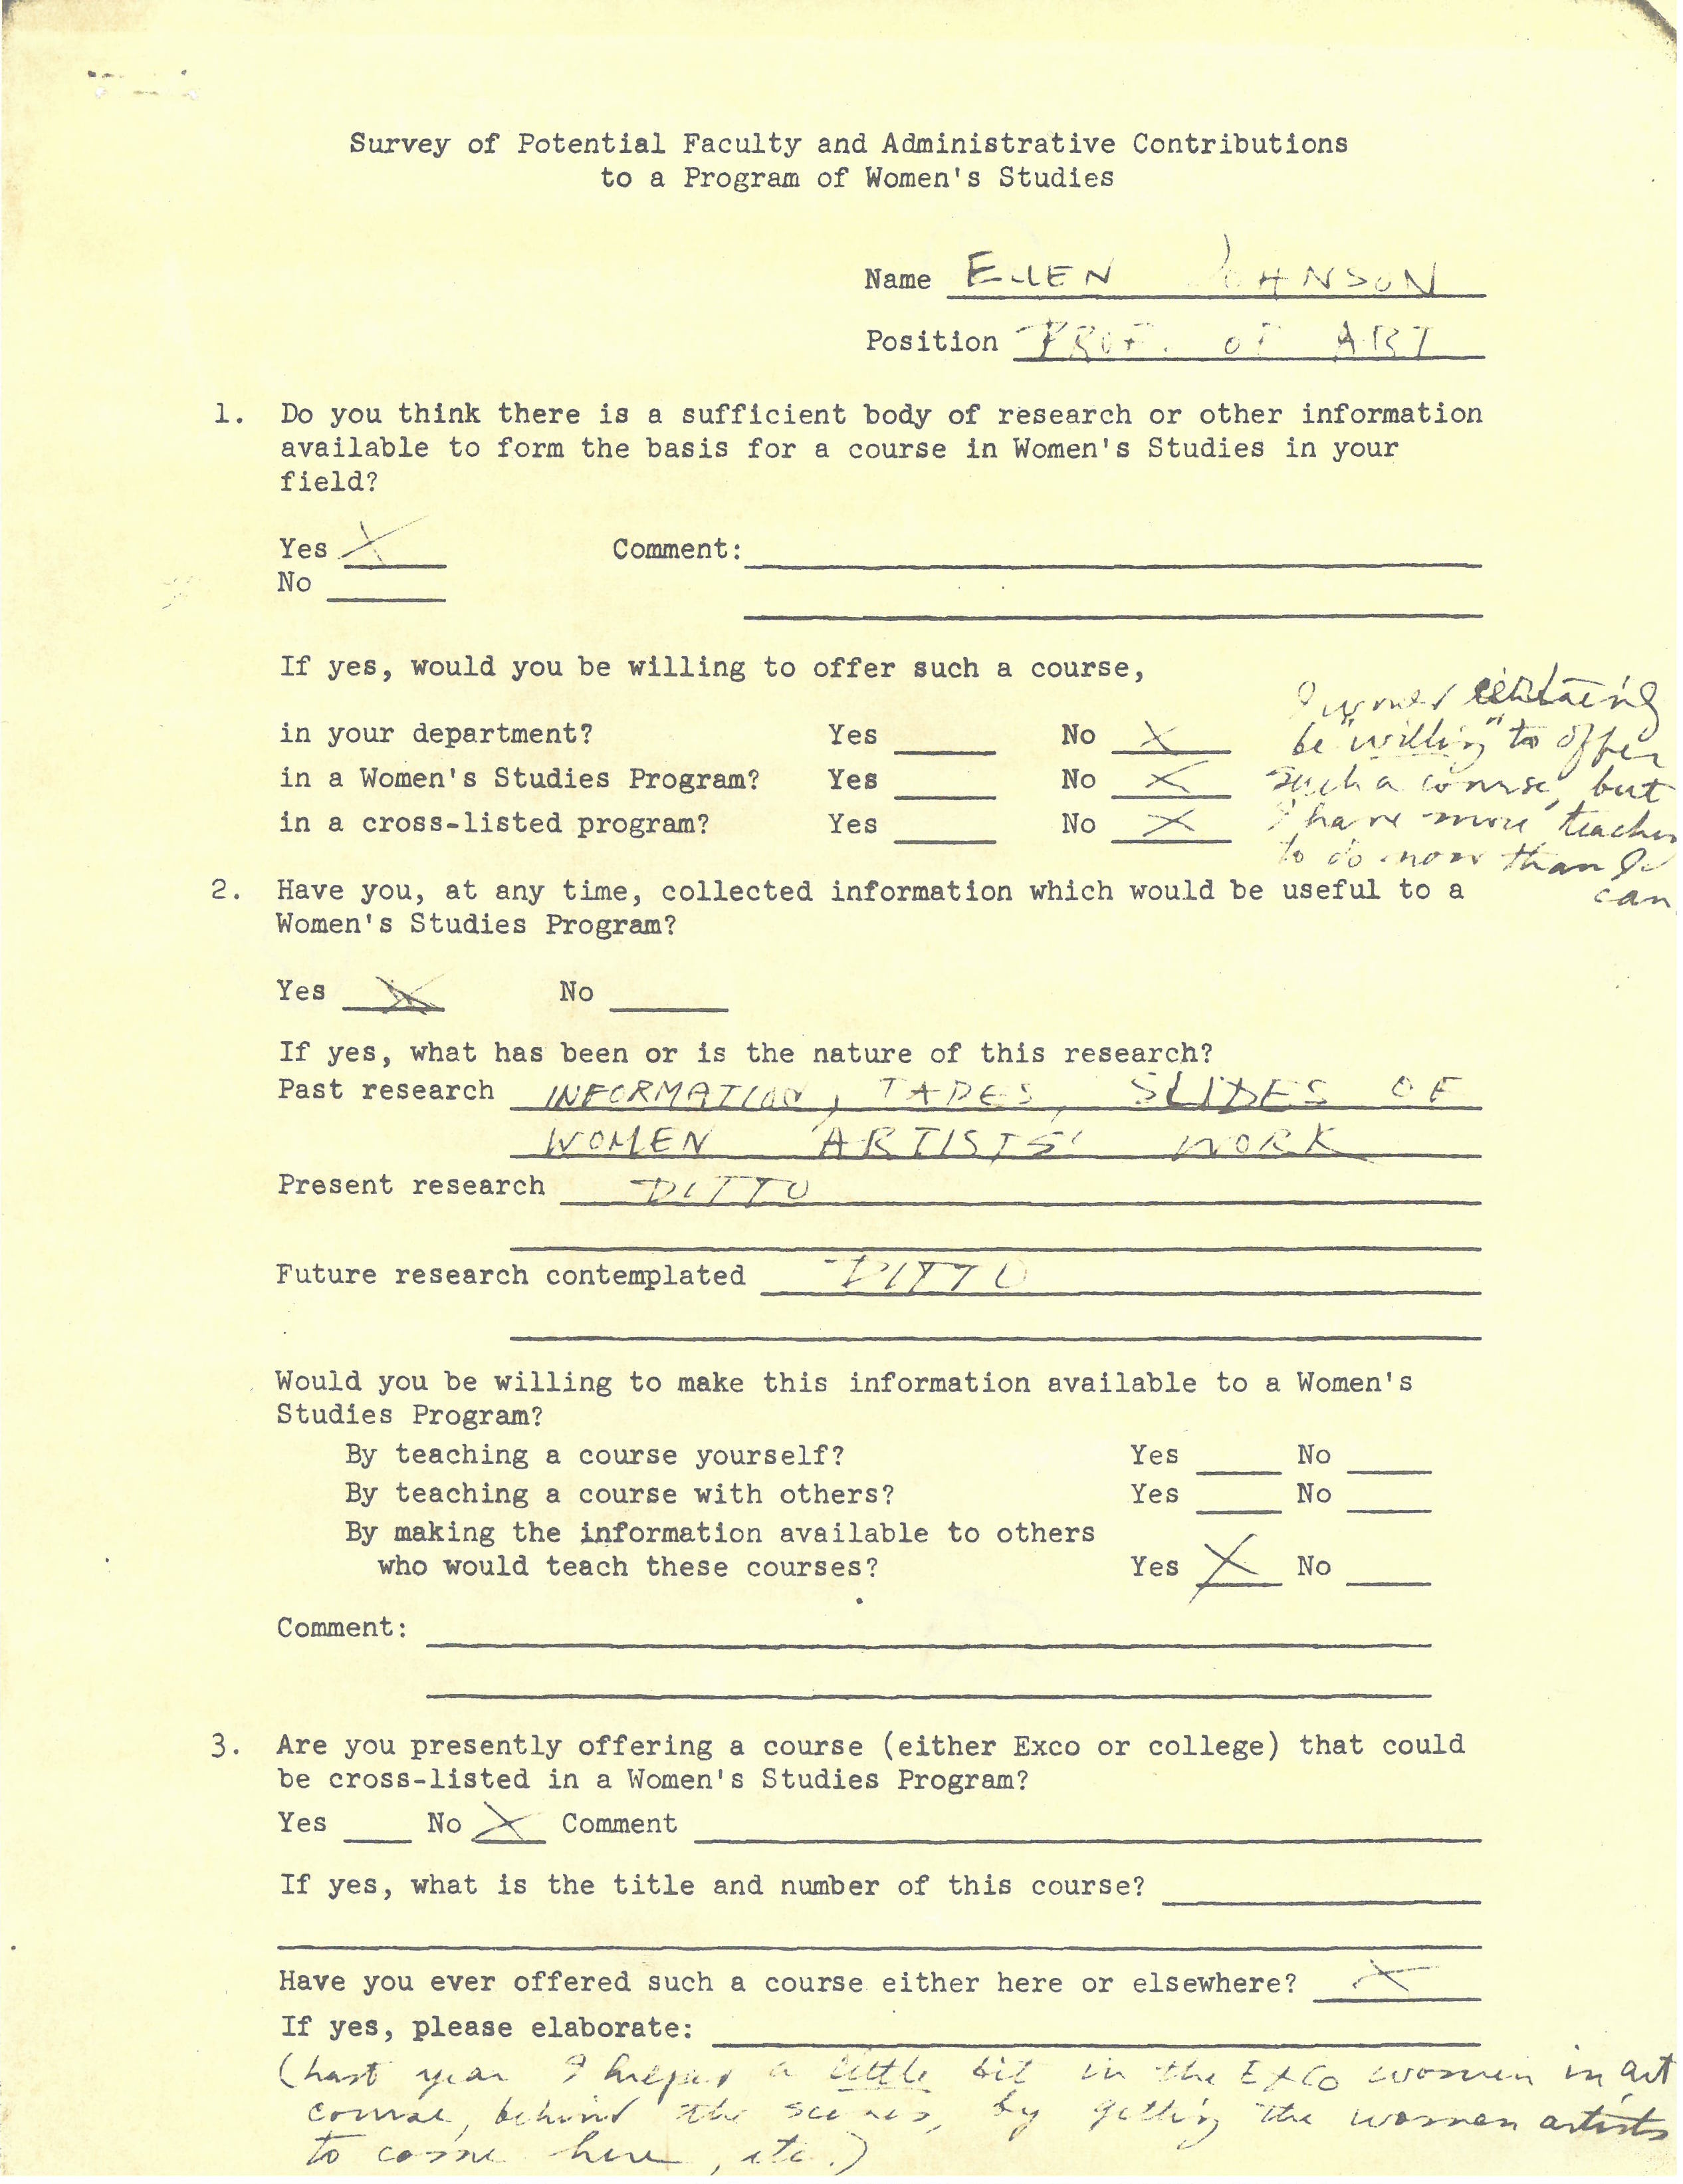 Survey of Potential Faculty and Administrative Contributions
to a Program of Women's Studies
Name ELLEN JOHNSON
Position PROF. OF ART
1. Do you think there is a sufficient body of research or other information
available to form the basis for a course in Women's Studies in your
field?
Yes X Comment:
No
If yes, would you be willing to offer such a course,
in your department? Yes No X
in a Women's Studies Program? Yes No X
in a cross-listed program? Yes No X
I would certainly
be "willing" to offer
such a course, but
I have more
to do now than I
can
2. Have you, at any time, collected information which would be useful to a
Women's Studies Program?
Yes X No
If yes, what has been or is the nature of this research?
Past research INFORMATION, TAPES, SLIDES OF
WOMEN ARTISTS' WORK
Present research DITTO
Future research contemplated DITTO
Would you be willing to make this information available to a Women's
Studies Program?
By teaching a course yourself? Yes No
By teaching a course with others? Yes No
By making the information available to others
who would teach these courses? Yes X No
Comment:
3. Are you presently offering a course (either Exco or college) that could
be cross-listed in a Women's Studies Program?
Yes No X Comment
If yes, what is the title and number of this course?
Have you ever offered such a course either here or elsewhere? X
If yes, please elaborate:
(Last year I helped a little bit in the EXCO women in art
course, behind the scenes, by getting the women artists
to come here, etc.)